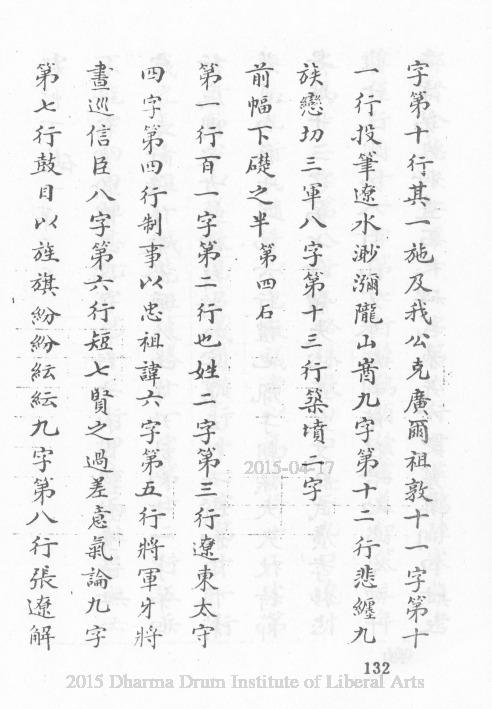 字第十行其一施及我公克廣爾祖敦十一字第十
一行投筆遼水渺瀰隴山嵩九字第十二行悲纏九
族戀切三軍八字第十三行築墳二字
前幅下礎之半第四石
第一行百一字第二行也姓二字第三行遼東太守
四字第四行制事以忠祖諱六字第五行將軍牙將
晝巡信臣八字第六行短七賢之過差意氣論九字
第七行鼓目以旌旗紛紛紜紜九字第八行張遼解
2015-04-17
132
2015 Dharma Drum Institute of Liberal Arts